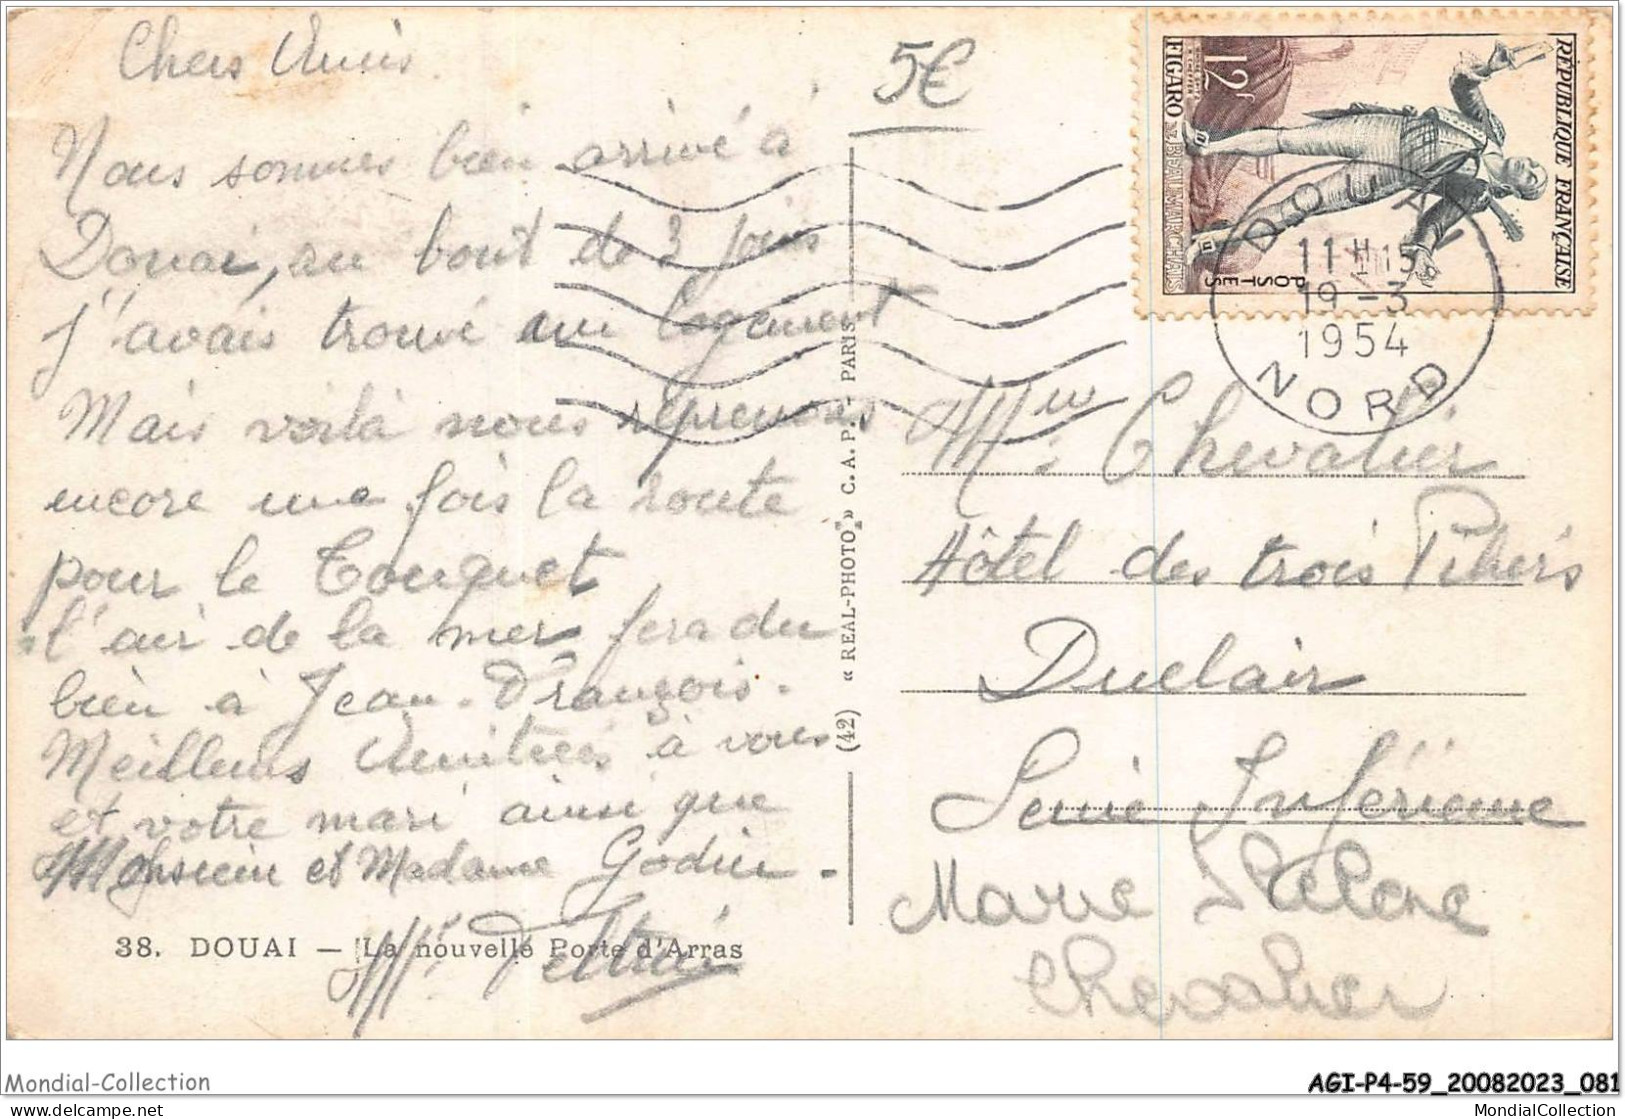 Chers Amis
Nous sommes bien arrivé à
Douai, au bout de 3 jours
j'avais trouvé un logement
Mais voilà nous reprenons
encore une fois la route
pour le Touquet
l'air de la mer fera du
bien à Jean-François.
Meilleurs Amitiées à vous
et votre mari ainsi que
Monsieur et Madame Godin -
38. DOUAI — La nouvelle Porte d'Arras
(42) « REAL-PHOTO » C. A. P. - PARIS
5€
RÉPUBLIQUE FRANÇAISE
12f
FIGARO BEAUMARCHAIS
POSTES
DOUAI
11H15
19-3
1954
NORD
Chevalier
Hôtel des trois Piliers
Duclair
Seine Inférieure
Marie Hélène
Chevalier
Mondial-Collection
AGI-P4-59_20082023_081
www.delcampe.net
MondialCollection